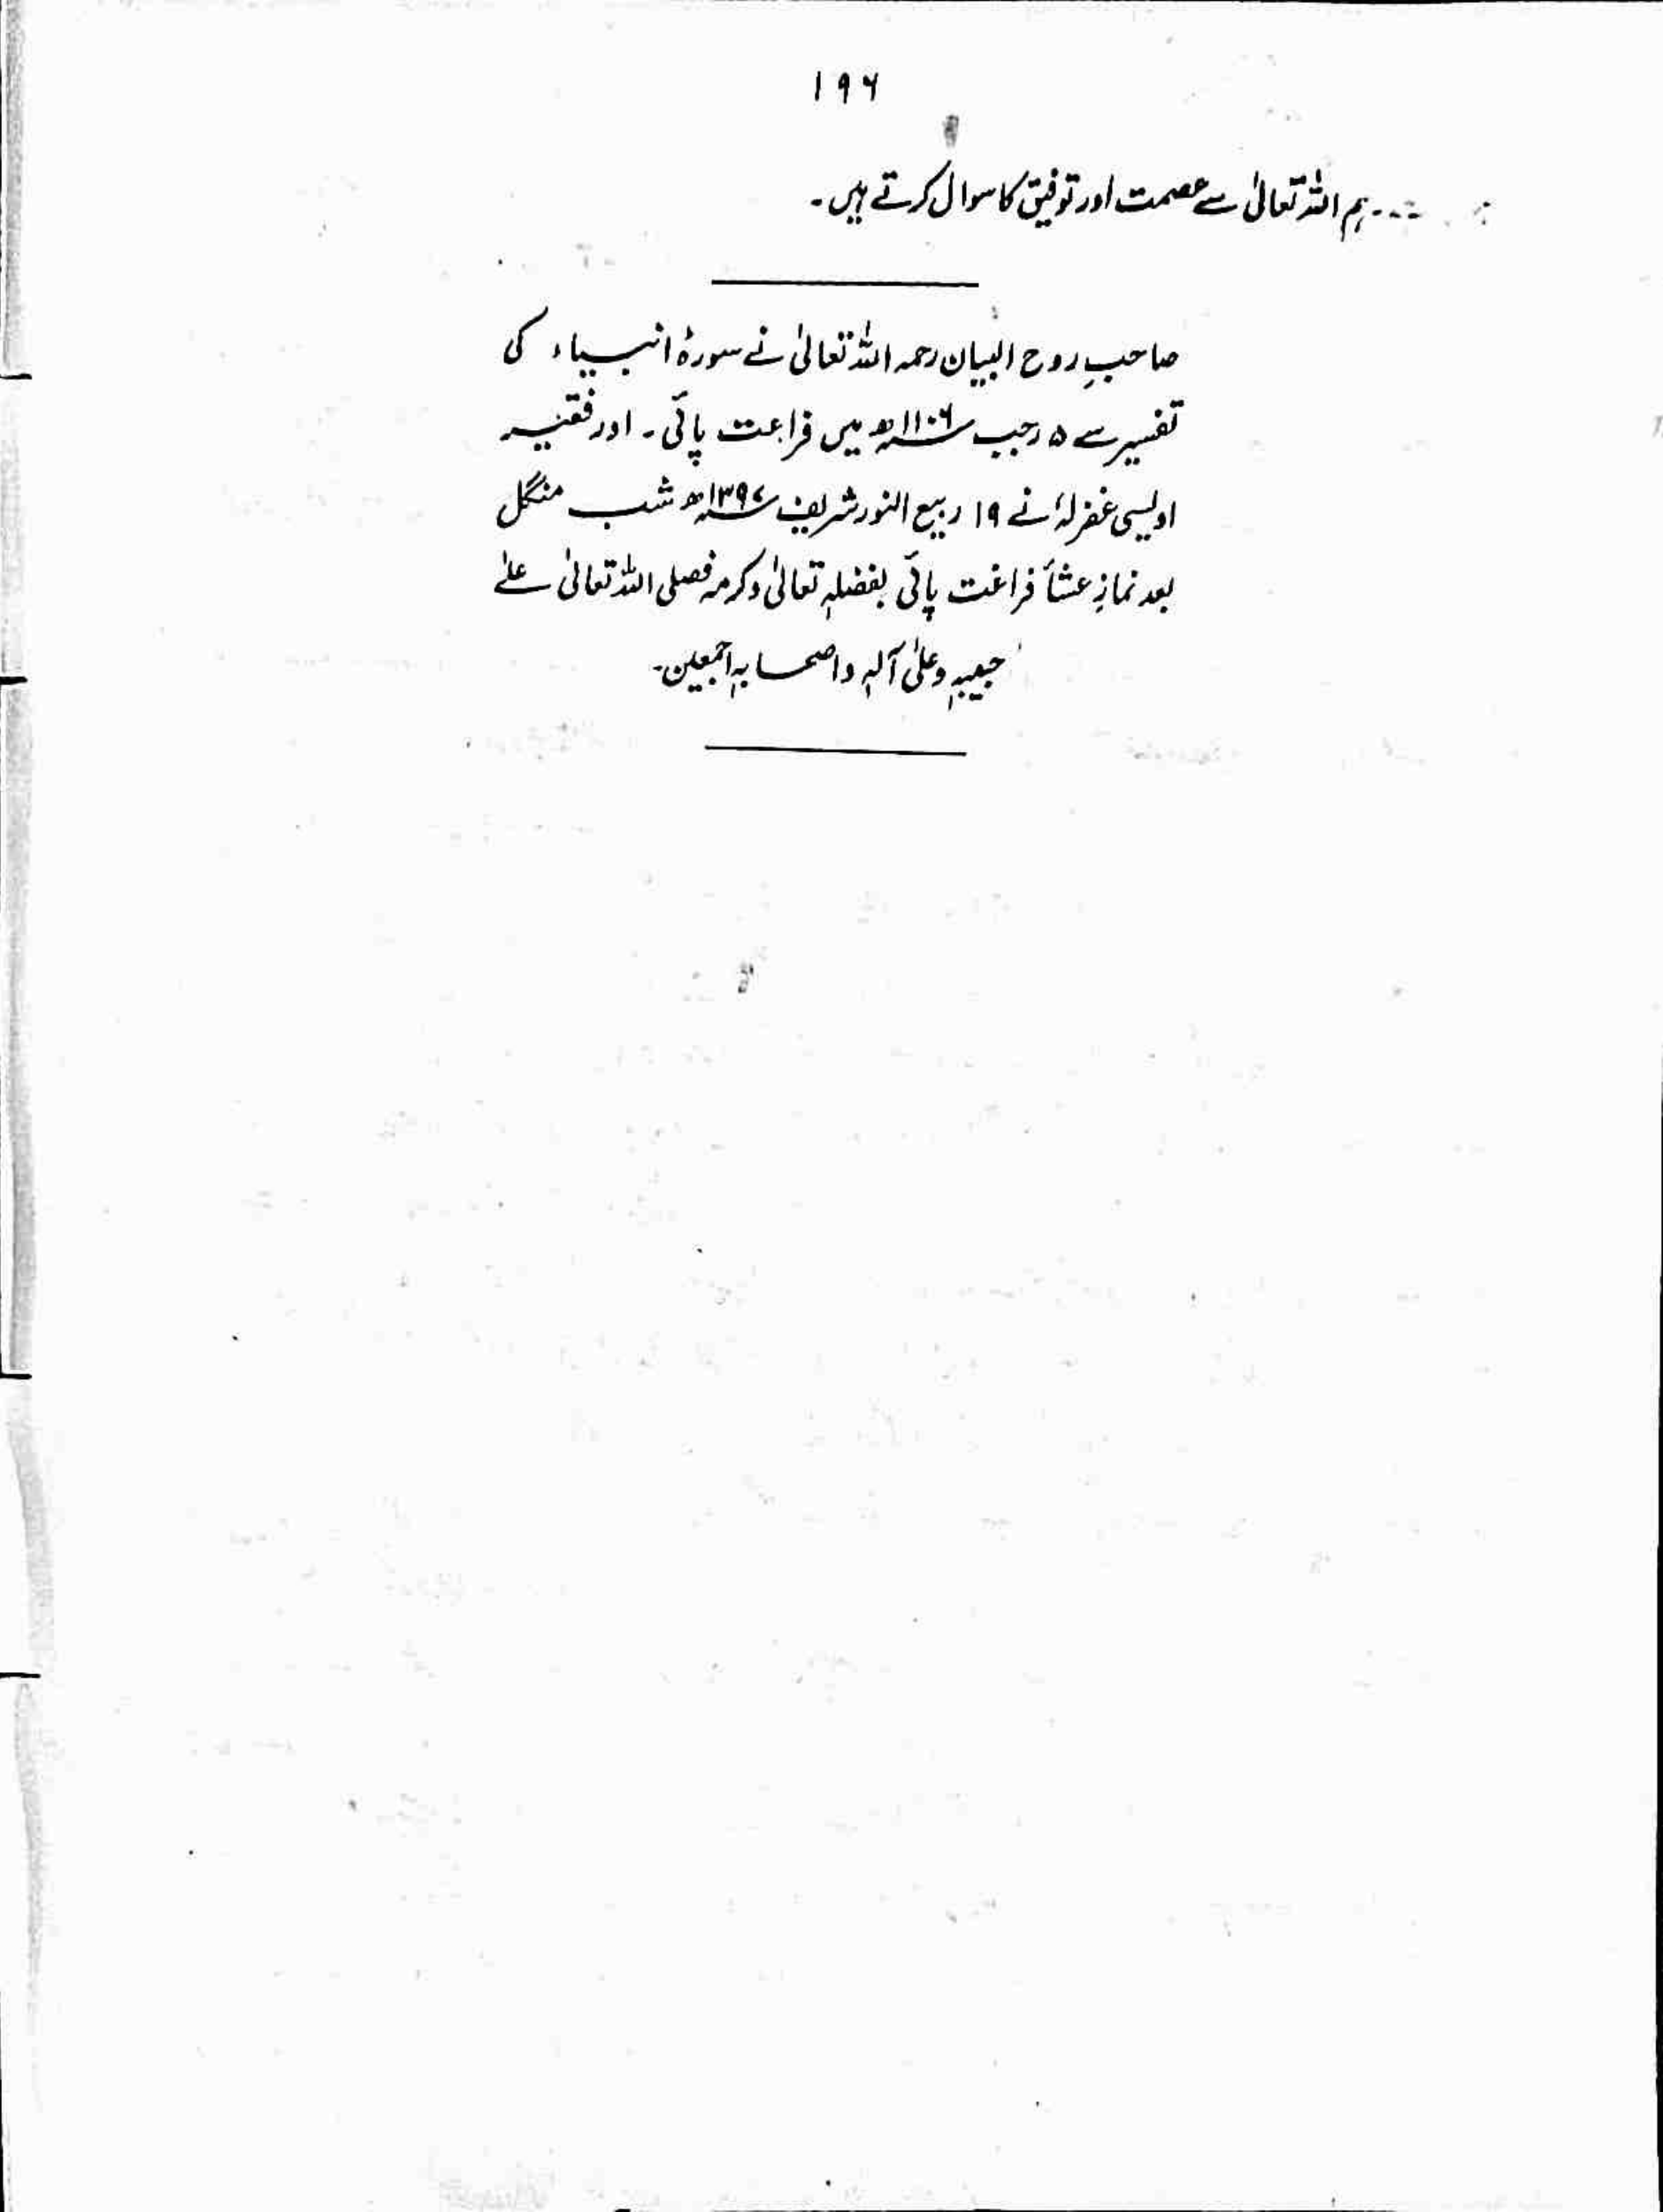 ۱۹۶
ہم اللہ تعالیٰ سے عصمت اور توفیق کا سوال کرتے ہیں۔
صاحبِ روح البیان رحمہ اللہ تعالیٰ نے سورۂ انبیاء کی
تفسیر سے ۵ رجب ۱۱۰۶ھ میں فراغت پائی۔ اور فقیر
اویسی غفرلہٗ نے ۱۹ ربیع النور شریف ۱۳۹۷ھ شب منگل
بعد نمازِ عشأ فراغت پائی بفضلہٖ تعالیٰ وکرمہ فصلی اللہ تعالیٰ علےٰ
حبیبہٖ وعلیٰ آلہٖ واصحابہٖ اجمعین۔